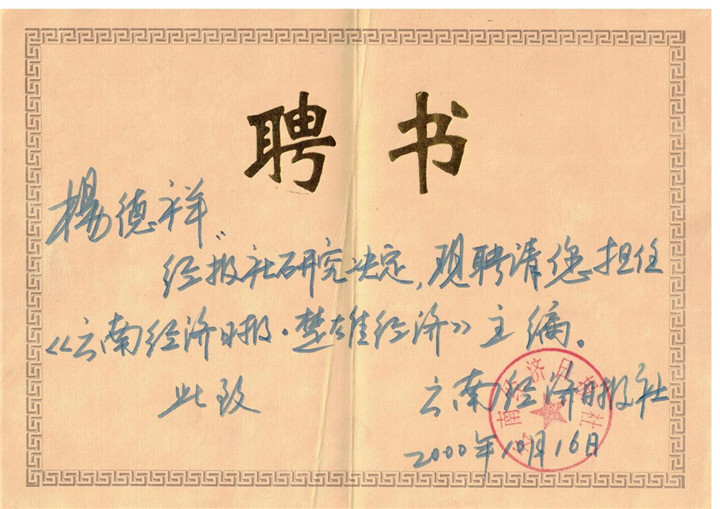 聘书
楊德祥:
经报社研究决定,现聘请您担任
《云南经济日报·楚雄经济》主编。
此致
云南经济日报社
2000年10月16日
云南经济日报社